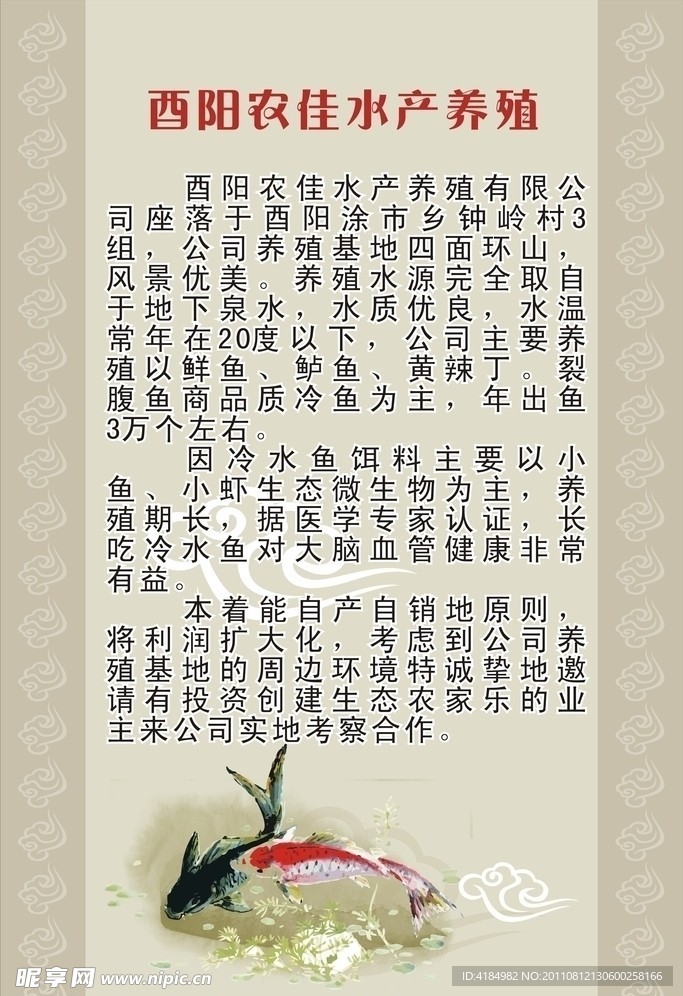 酉阳农佳水产养殖
酉阳农佳水产养殖有限公
司座落于酉阳涂市乡钟岭村3
组，公司养殖基地四面环山，
风景优美。养殖水源完全取自
于地下泉水，水质优良，水温
常年在20度以下，公司主要养
殖以鲜鱼、鲈鱼、黄辣丁。裂
腹鱼商品质冷鱼为主，年出鱼
3万个左右。
因冷水鱼饵料主要以小
鱼、小虾生态微生物为主，养
殖期长，据医学专家认证，长
吃冷水鱼对大脑血管健康非常
有益。
本着能自产自销地原则，
将利润扩大化，考虑到公司养
殖基地的周边环境特诚挚地邀
请有投资创建生态农家乐的业
主来公司实地考察合作。
昵享网 www.nipic.cn
ID:4184982 NO:20110812130600258166